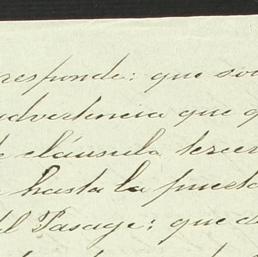 responde: que so
advertencia que q
cláusula tercer
hasta la puerta
el Pasage: que de